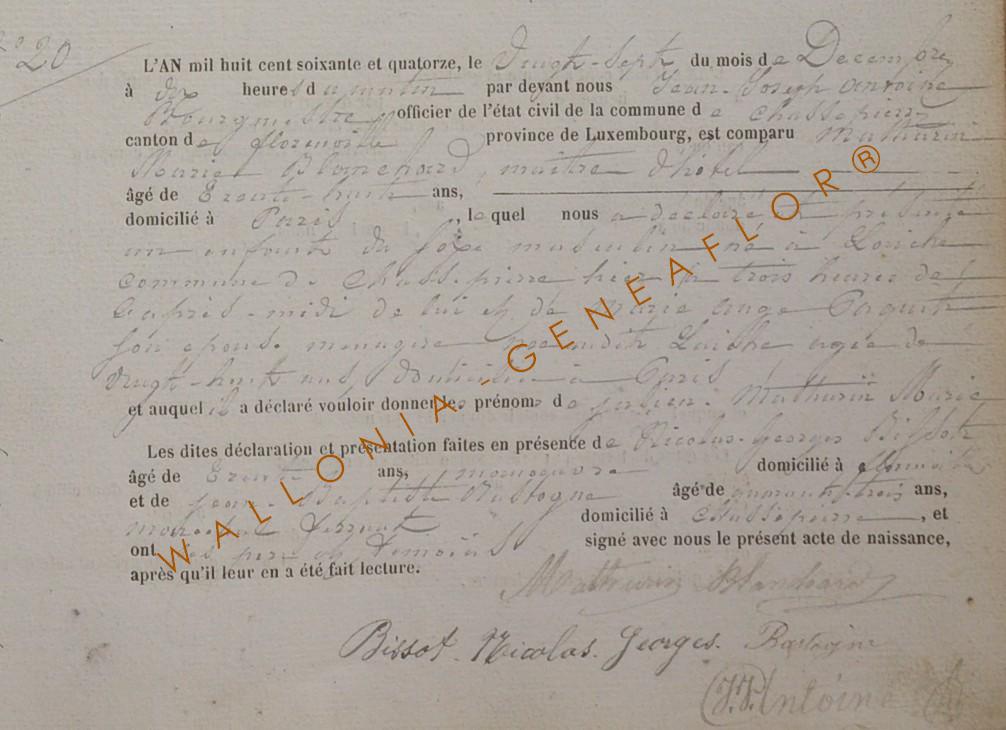 N° 20
L'AN mil huit cent soixante et quatorze, le Vingt-Sept du mois de Decembre
à dix heures du matin par devant nous Jean-Joseph Antoine
Bourgmestre officier de l'état civil de la commune de Chassepierre
canton de florenville province de Luxembourg, est comparu Mathurin
Mouriet Blanchard, maître d'hôtel
âgé de trente-huit ans,
domicilié à Paris, lequel nous a déclaré et présenté
un enfant du sexe masculin né à Laiche
commune de Chassepierre hier à trois heures de
l'après-midi de lui et de Marie ange
son épouse menagère née audit Laiche agée de
vingt-huit ans, domiciliée à Paris
et auquel il a déclaré vouloir donner les prénoms de julien. Mathurin
Les dites déclaration et présentation faites en présence de Nicolas-Georges Bissot
âgé de trente ans, manoeuvre domicilié à
et de jean-Baptiste Bastogne âgé de quarante-trois ans,
marechal ferrant domicilié à Chassepierre, et
ont les pere et témoins signé avec nous le présent acte de naissance,
après qu'il leur en a été fait lecture.
Mathurin Blanchard
Bissot. Nicolas. Georges. Bastogne
(J.J. Antoine)
WALLONIA - GENEAFLOR ®